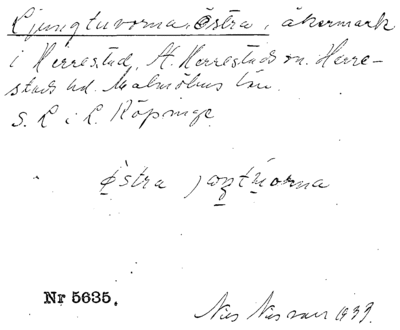 Ljungtuvorna, Östra, åkermark
i Herrestad, St. Herrestads sn. Herre-
stads hd. Malmöhus län.
S. R i L. Köpinge
östra
Nr 5635.
Nils 1939.